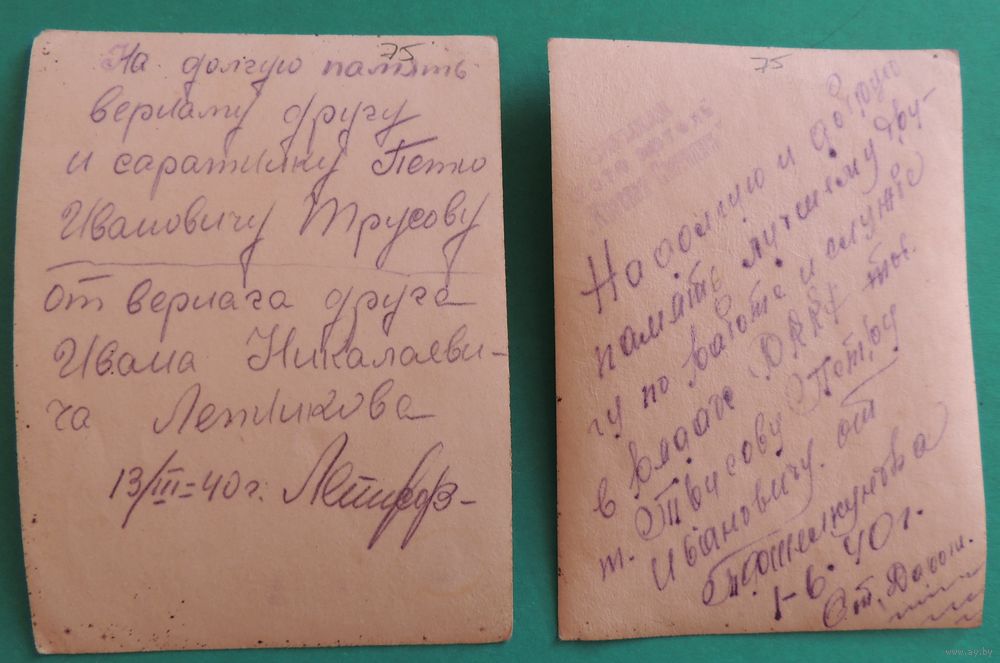 75
На долгую память
верному другу
и саратнику Петно
Ивановичу Трусову
от вернага друга
Ивана Николаеви-
ча Летникова
13/III-40 г.
75
На долгую и добрую
память лучшему дру-
гу по работе и службе
в
т. Трусову Петру
Ивановичу. от
1-6. 40 г.
Ст.
www.ay.by